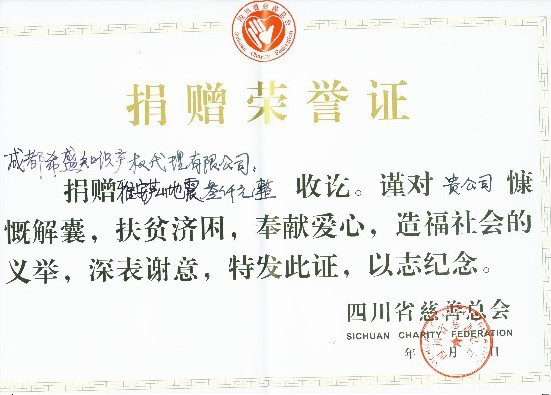 四川省慈善总会
Sichuan Charity Federation
捐赠荣誉证
成都希盛知识产权代理有限公司：
捐赠雅安地震叁仟元整 收讫。谨对 贵公司 慷
慨解囊，扶贫济困，奉献爱心，造福社会的
义举，深表谢意，特发此证，以志纪念。
四川省慈善总会
SICHUAN CHARITY FEDERATION
年 月 日